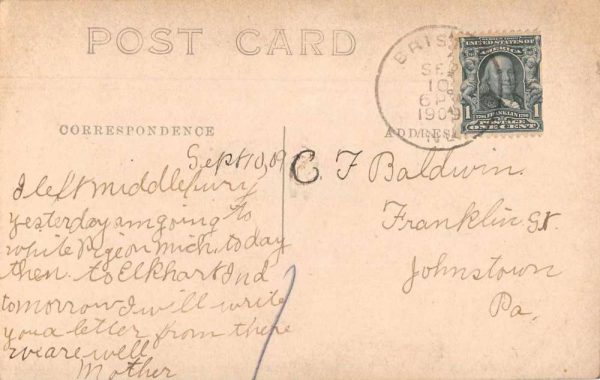 POST CARD
BRIS
SE
10
6 P
1909
UNITED STATES OF
AMERICA
1
1
FRANKLIN
POSTAGE
ONE CENT
CORRESPONDENCE
ADDRESS
Sept 10, 09
I left Middlebury
yesterday am going to
white Pigeon Mich. today
then to Elkhart Ind
tomorrow I will write
you a letter from there
we are well
Mother
C. F. Baldwin.
Franklin St.
Johnstown
Pa.